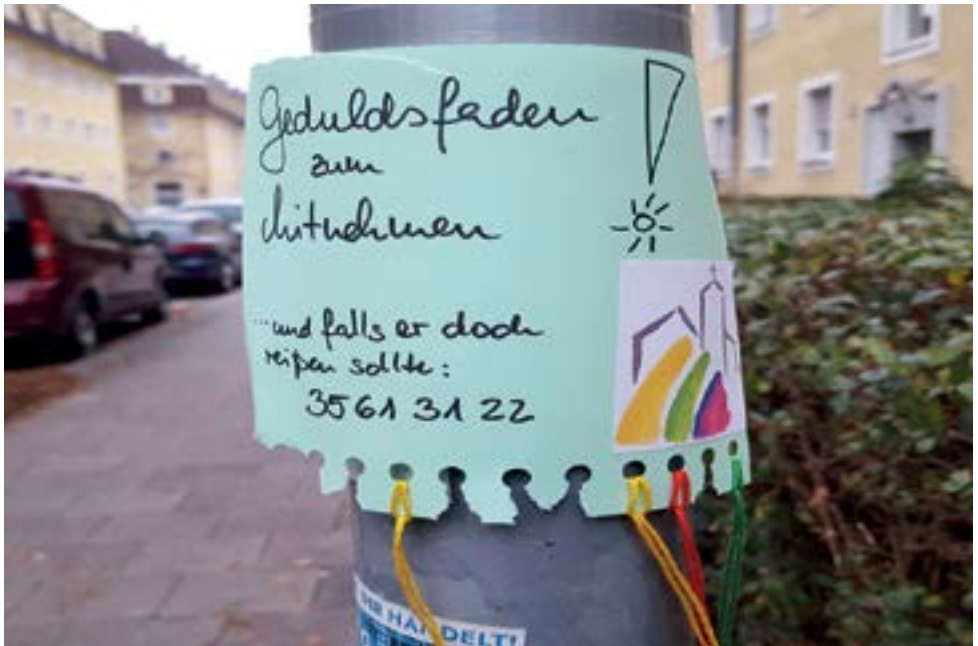 Geduldsfaden
zum
Mitnehmen
...und falls er doch
reißen sollte:
3561 31 22
IHR HANDELT!